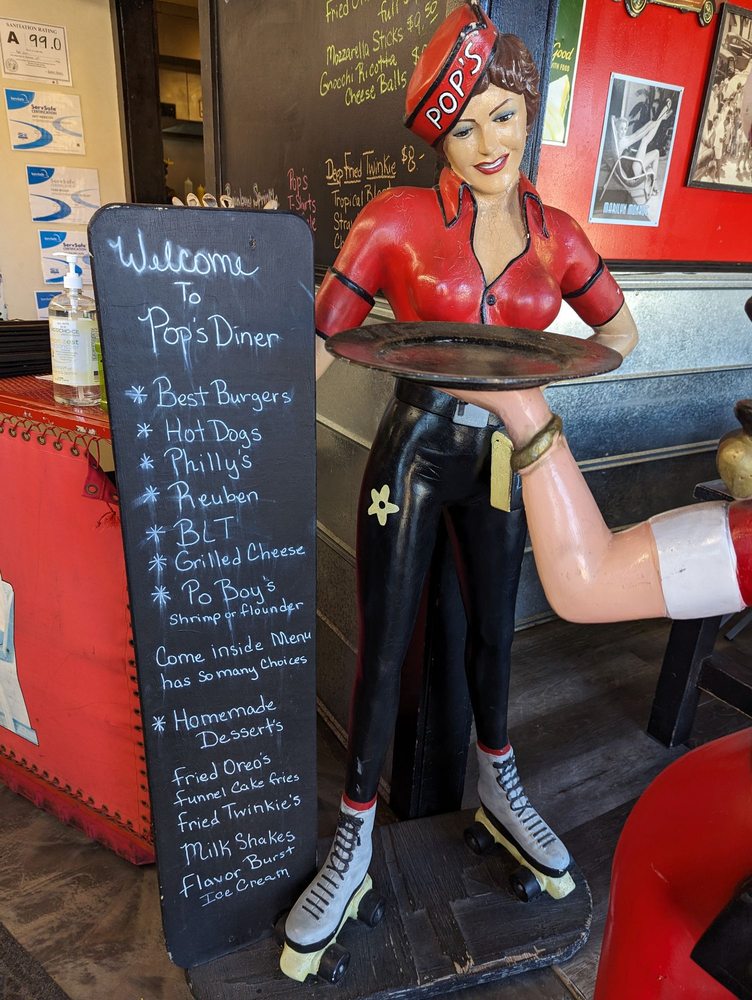 SANITATION RATING
A 99.0
ServSafe
ServSafe
Fried
full
Mozzarella Sticks $9.50
Gnocchi Ricotta
Cheese Balls
Deep Fried Twinkie $8.
Tropical
Pop's
T-Shirts
POP'S
Good
MARILYN MONROE
Welcome
To
Pop's Diner
* Best Burgers
* Hot Dogs
* Philly's
* Reuben
* BLT
* Grilled Cheese
* Po Boy's
Shrimp or flounder
Come inside Menu
has so many choices
* Homemade
Dessert's
Fried Oreo's
funnel cake fries
fried Twinkie's
Milk Shakes
Flavor Burst
Ice Cream